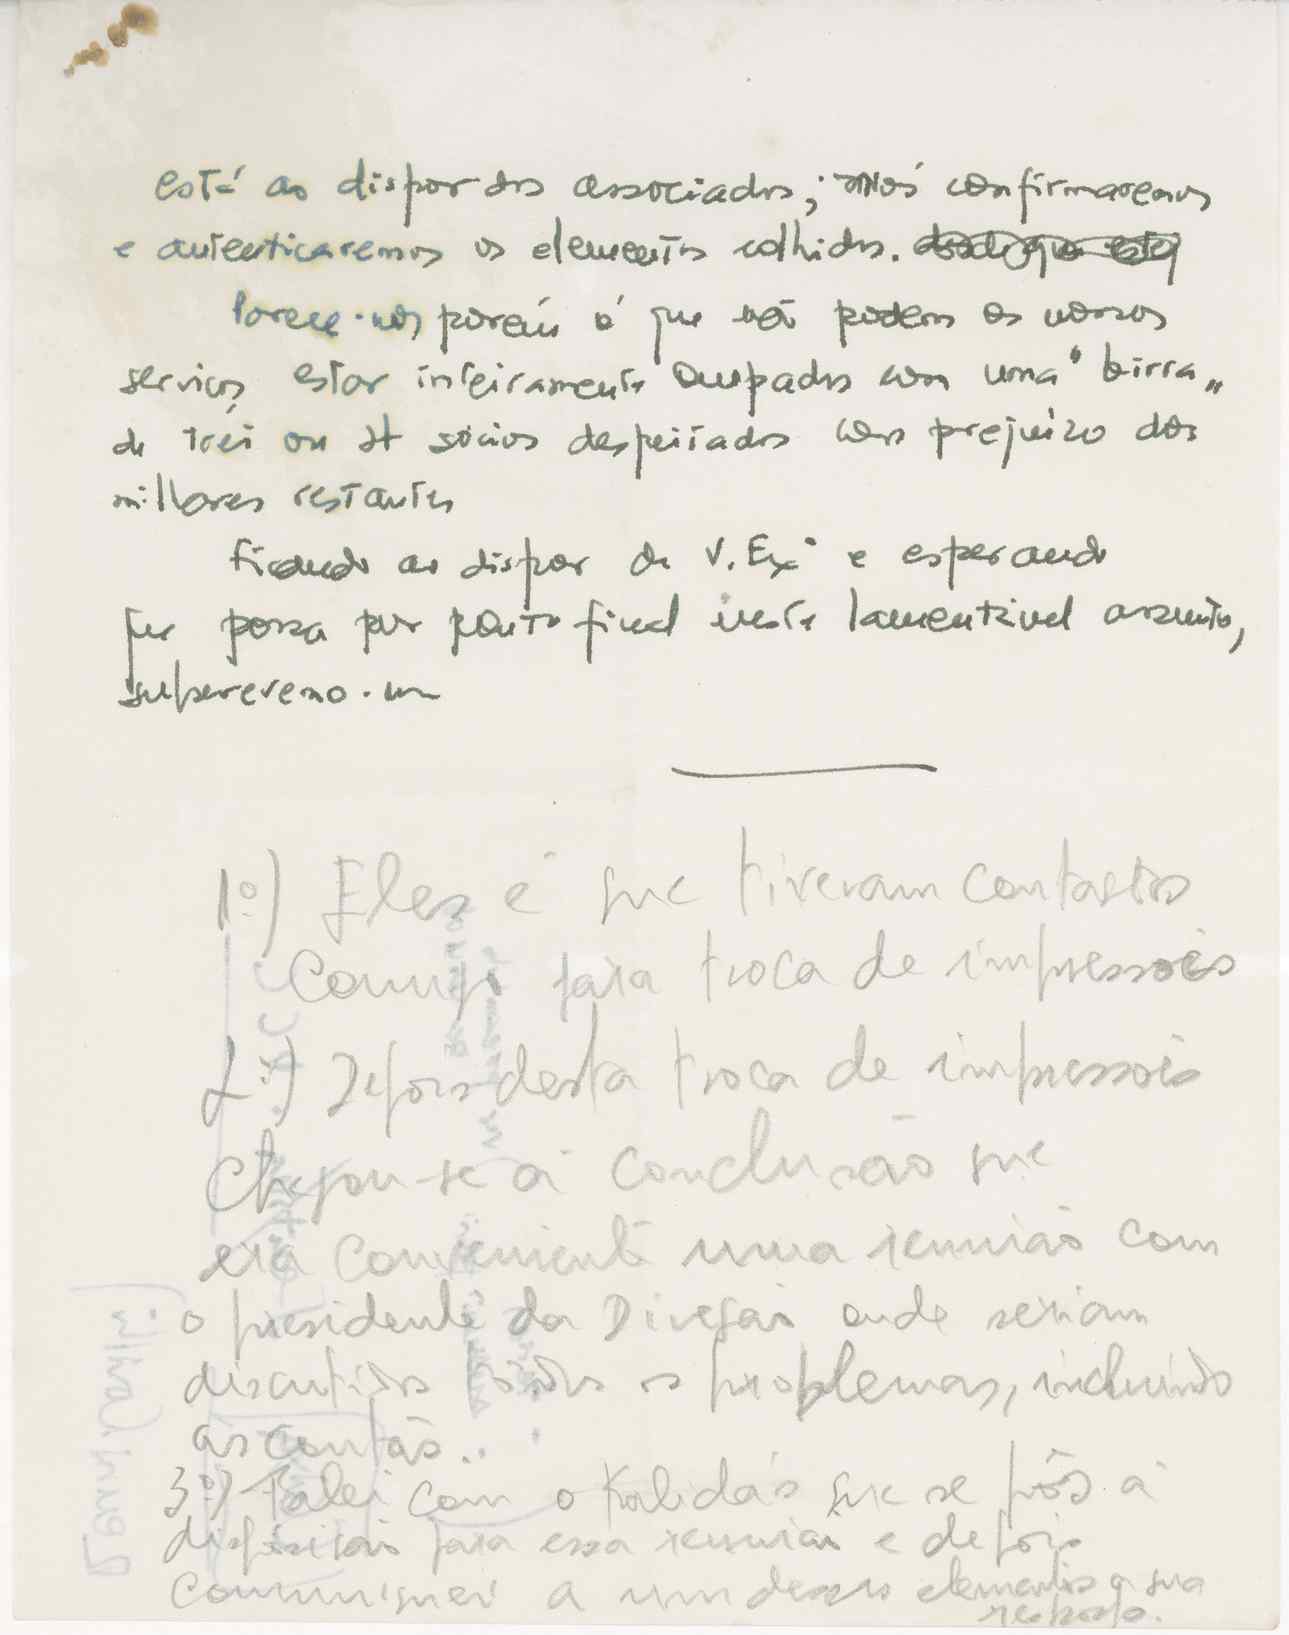 está ao dispor dos associados; nós confirmaremos
e autenticaremos os elementos colhidos.
Parece-nos porém é que não podem os nossos
serviços estar inteiramente ocupados com uma "birra"
de três ou 4 sócios despeitados com prejuízo dos
milhares restantes
Ficando ao dispor de V. Exª e esperando
que possa por ponto final neste lamentável assunto,
subscrevemo-nos
1º) Eles é que tiveram contactos
comigo para troca de impressões
2º) Depois desta troca de impressões
chegou-se à conclusão que
era conveniente uma reunião com
o presidente da Direção onde seriam
discutidos todos os problemas, incluindo
as contas..
3º) Falei com o Kalidás que se pôs à
disposição para essa reunião e depois
comuniquei a um desses elementos a sua
resposta.